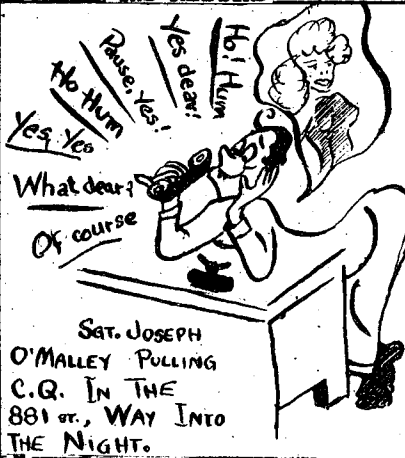 Ho! Hum
Yes dear!
Pause, Yes!
Ho Hum
Yes, Yes
What dear?
Of course
SGT. JOSEPH
O'MALLEY PULLING
C.Q. IN THE
881 ST., WAY INTO
THE NIGHT.